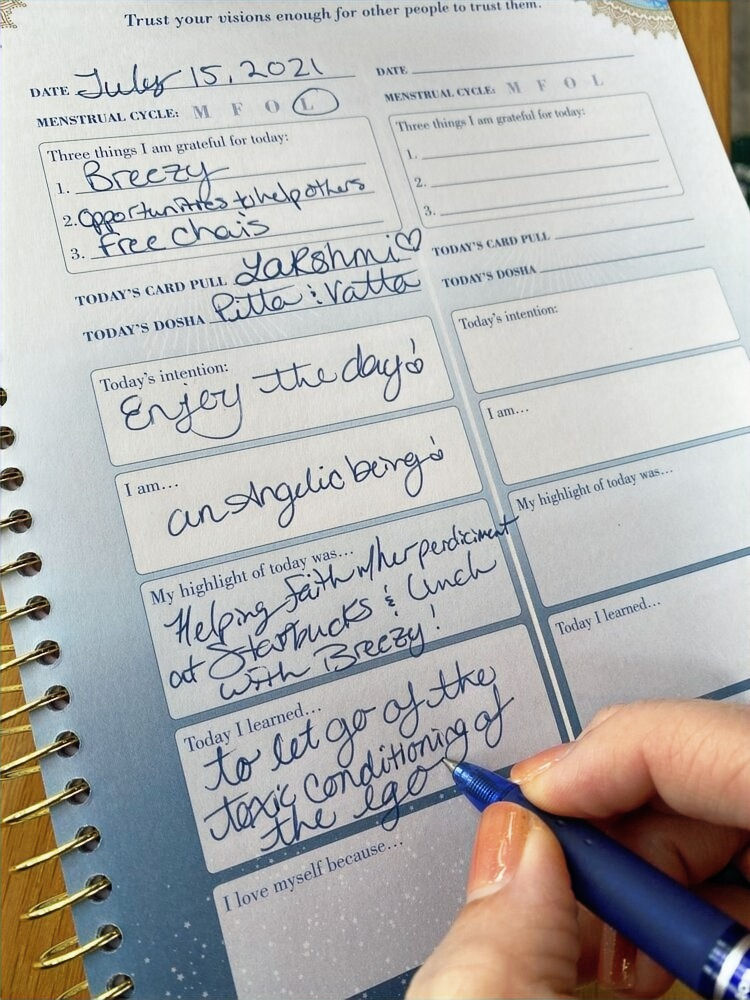 Trust your visions enough for other people to trust them.
DATE July 15, 2021
MENSTRUAL CYCLE: M F O L
Three things I am grateful for today:
1. Breezy
2. Opportunities to help others
3. Free Chais
TODAY'S CARD PULL Lakshmi♡
TODAY'S DOSHA Pitta & Vatta
Today's intention:
Enjoy the day!
I am...
an Angelic being!
My highlight of today was...
Helping Faith w/her perdiciment
at Starbucks & lunch
with Breezy!
Today I learned...
to let go of the
toxic conditioning of
the ego
I love myself because...
DATE
MENSTRUAL CYCLE: M F O L
Three things I am grateful for today:
1.
2.
3.
TODAY'S CARD PULL
TODAY'S DOSHA
Today's intention:
I am...
My highlight of today was...
Today I learned...